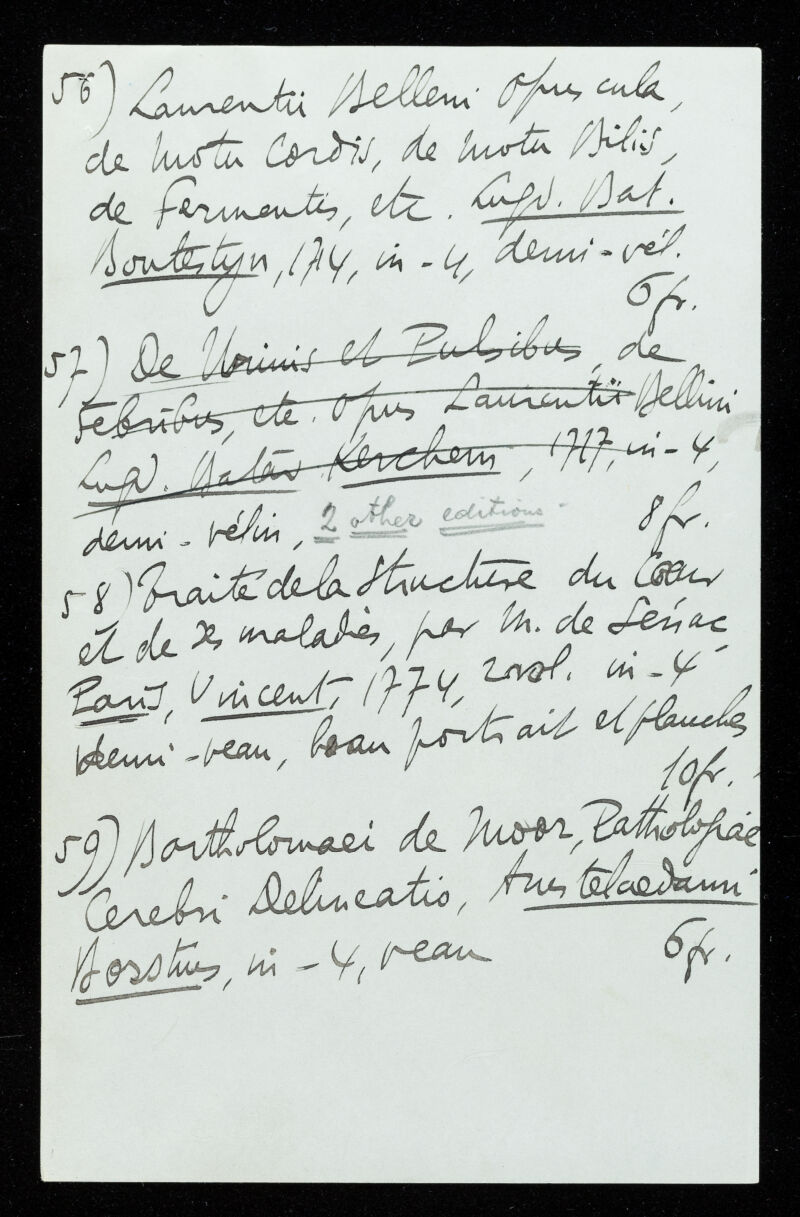 56) Laurentii Belleni Opuscula,
de Motu Cordis, de Motu Bilis,
de Fermentis, etc. Lugd. Bat.
Boutestyn, 1714, in-4, demi-vél.
6 fr.
57) De Urinis et Pulsibus, de
Febribus, etc. Opus Laurentii Bellini
Lugd. Batav Kerchem, 1717, in-4,
demi-vélin, 2 other editions 8 fr.
58) Traité de la Structure du Coeur
et de ses maladies, par M. de Sénac
Paris, Vincent, 1774, 2 vol. in-4
demi-veau, beau portrait et planches
10 fr.
59) Bartholomaei de Moor, Pathologiae
Cerebri Delineatio, Amstelaedami
Borstius, in-4, veau 6 fr.